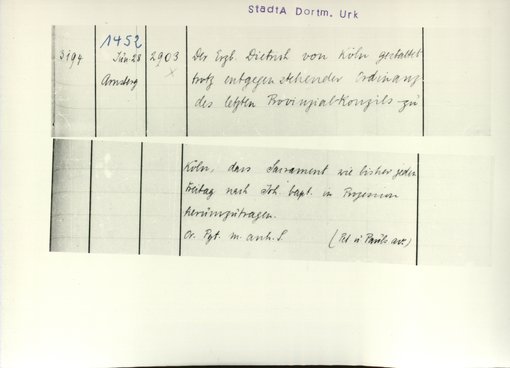 StadtA Dortm. Urk
1452
3194 Jun. 28 2903 Der Erzb. Dietrich von Köln gestattet
Arnsberg trotz entgegenstehender Ordinanz
des letzten Provinzial-Konzils zu
Köln, dass Sacrament wie bisher jeden
Freitag nach Joh. bapt. in Prozession
herumzutragen.
Or. Pgt. m. anh. S. (Pet u Pauls av.)